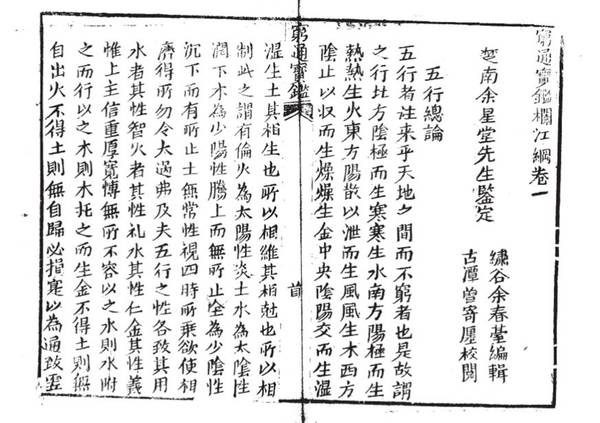 窮通寶鑑欄江綱卷一
楚南余星堂先生鑑定
繡谷余春臺編輯
古潭曾寄校閱
五行總論
五行者往來乎天地之間而不窮者也是故謂
之行北方陰極而生寒寒生水南方陽極而生
熱熱生火東方陽散以泄而生風風生木西方
陰止以収而生燥燥生金中央陰陽交而生湿
窮通寶鑑
首
湿生土其相生也所以相維其相尅也所以相
制此之謂有倫火為太陽性炎上水為太陰性
潤下木為少陽性騰上而無所止金為少陰性
沉下而有所止土無常性視四時所乘欲使相
濟得所勿令太過弗及夫五行之性各致其用
水者其性智火者其性礼木其性仁金其性義
惟土主信重厚寬博無所不容以之水則水附
之而行以之木則木托之而生金不得土則無
自出火不得土則無自歸必損寔以為通致虛